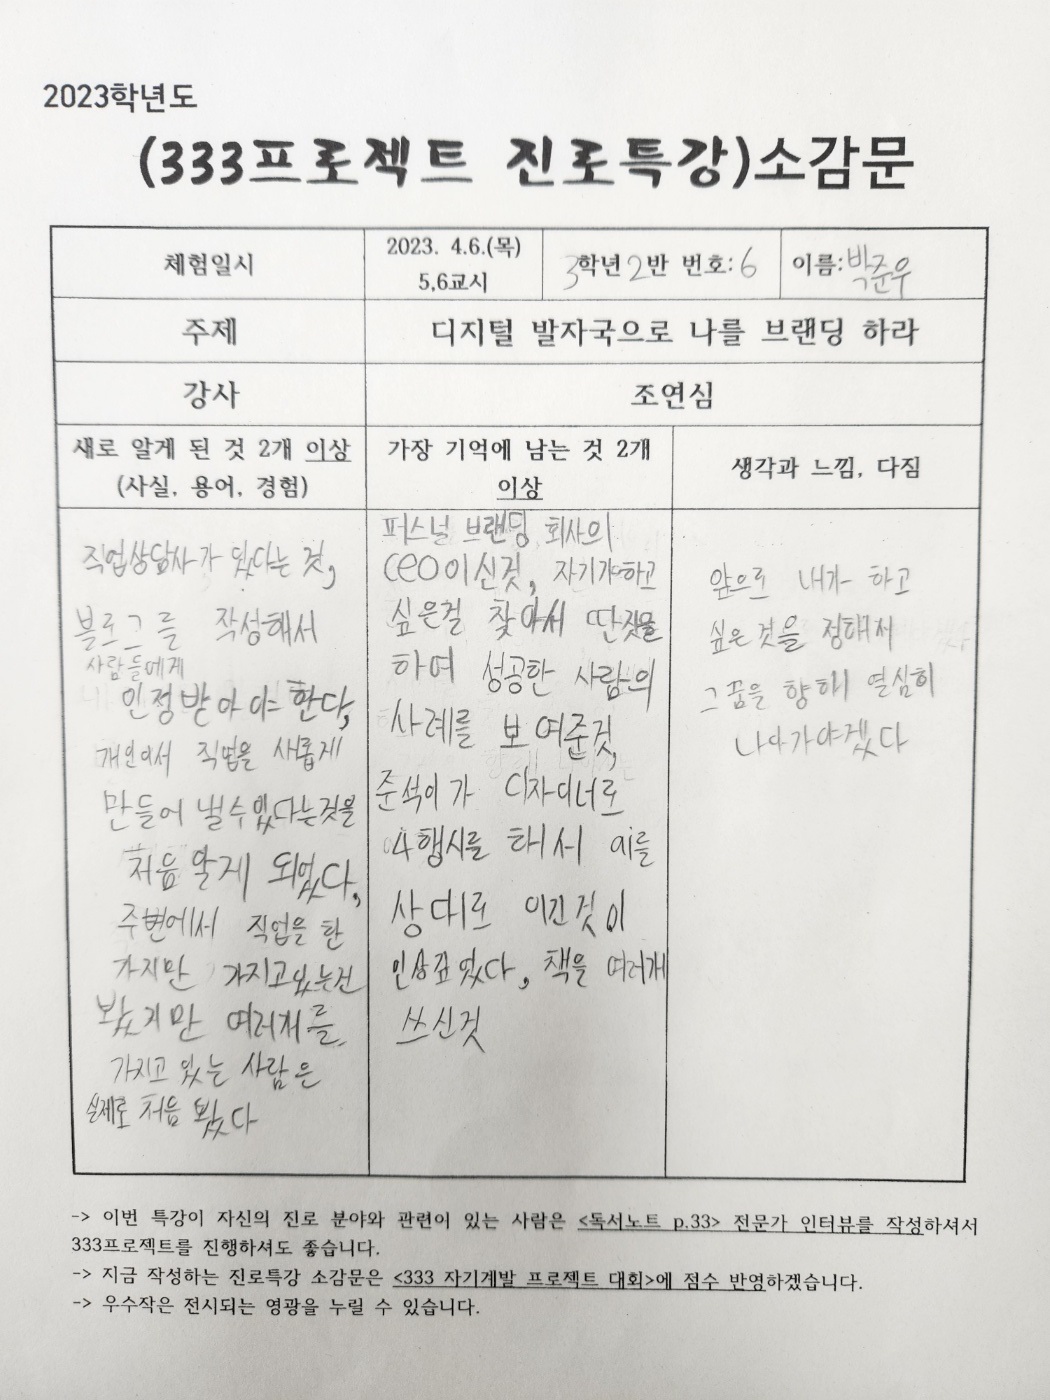 2023학년도
(333프로젝트 진로특강)소감문
체험일시
2023. 4.6.(목)
5,6교시
3학년 2반 번호: 6
이름: 박준우
주제
디지털 발자국으로 나를 브랜딩 하라
강사
조연심
새로 알게 된 것 2개 이상
(사실, 용어, 경험)
가장 기억에 남는 것 2개
이상
생각과 느낌, 다짐
직업상담사가 있다는 것,
블로그를 작성해서
사람들에게
인정받아야 한다,
개인에서 직업을 새롭게
만들어 낼수있다는것을
처음 알게 되었다,
주변에서 직업을 한
가지만 가지고있는건
봤지만 여러개를
가지고 있는 사람은
실제로 처음 봤다
퍼스널 브랜딩 회사의
CEO이신것, 자기가하고
싶은걸 찾아서 딴짓을
하여 성공한 사람의
사례를 보여준것,
준석이가 디자이너로
4행시를 해서 ai를
상대로 이긴것이
인상깊었다, 책을 여러개
쓰신것
앞으로 내가 하고
싶은것을 정해서
그 꿈을 향해 열심히
나아가야겠다
-> 이번 특강이 자신의 진로 분야와 관련이 있는 사람은 <독서노트 p.33> 전문가 인터뷰를 작성하셔서
333프로젝트를 진행하셔도 좋습니다.
-> 지금 작성하는 진로특강 소감문은 <333 자기계발 프로젝트 대회>에 점수 반영하겠습니다.
-> 우수작은 전시되는 영광을 누릴 수 있습니다.